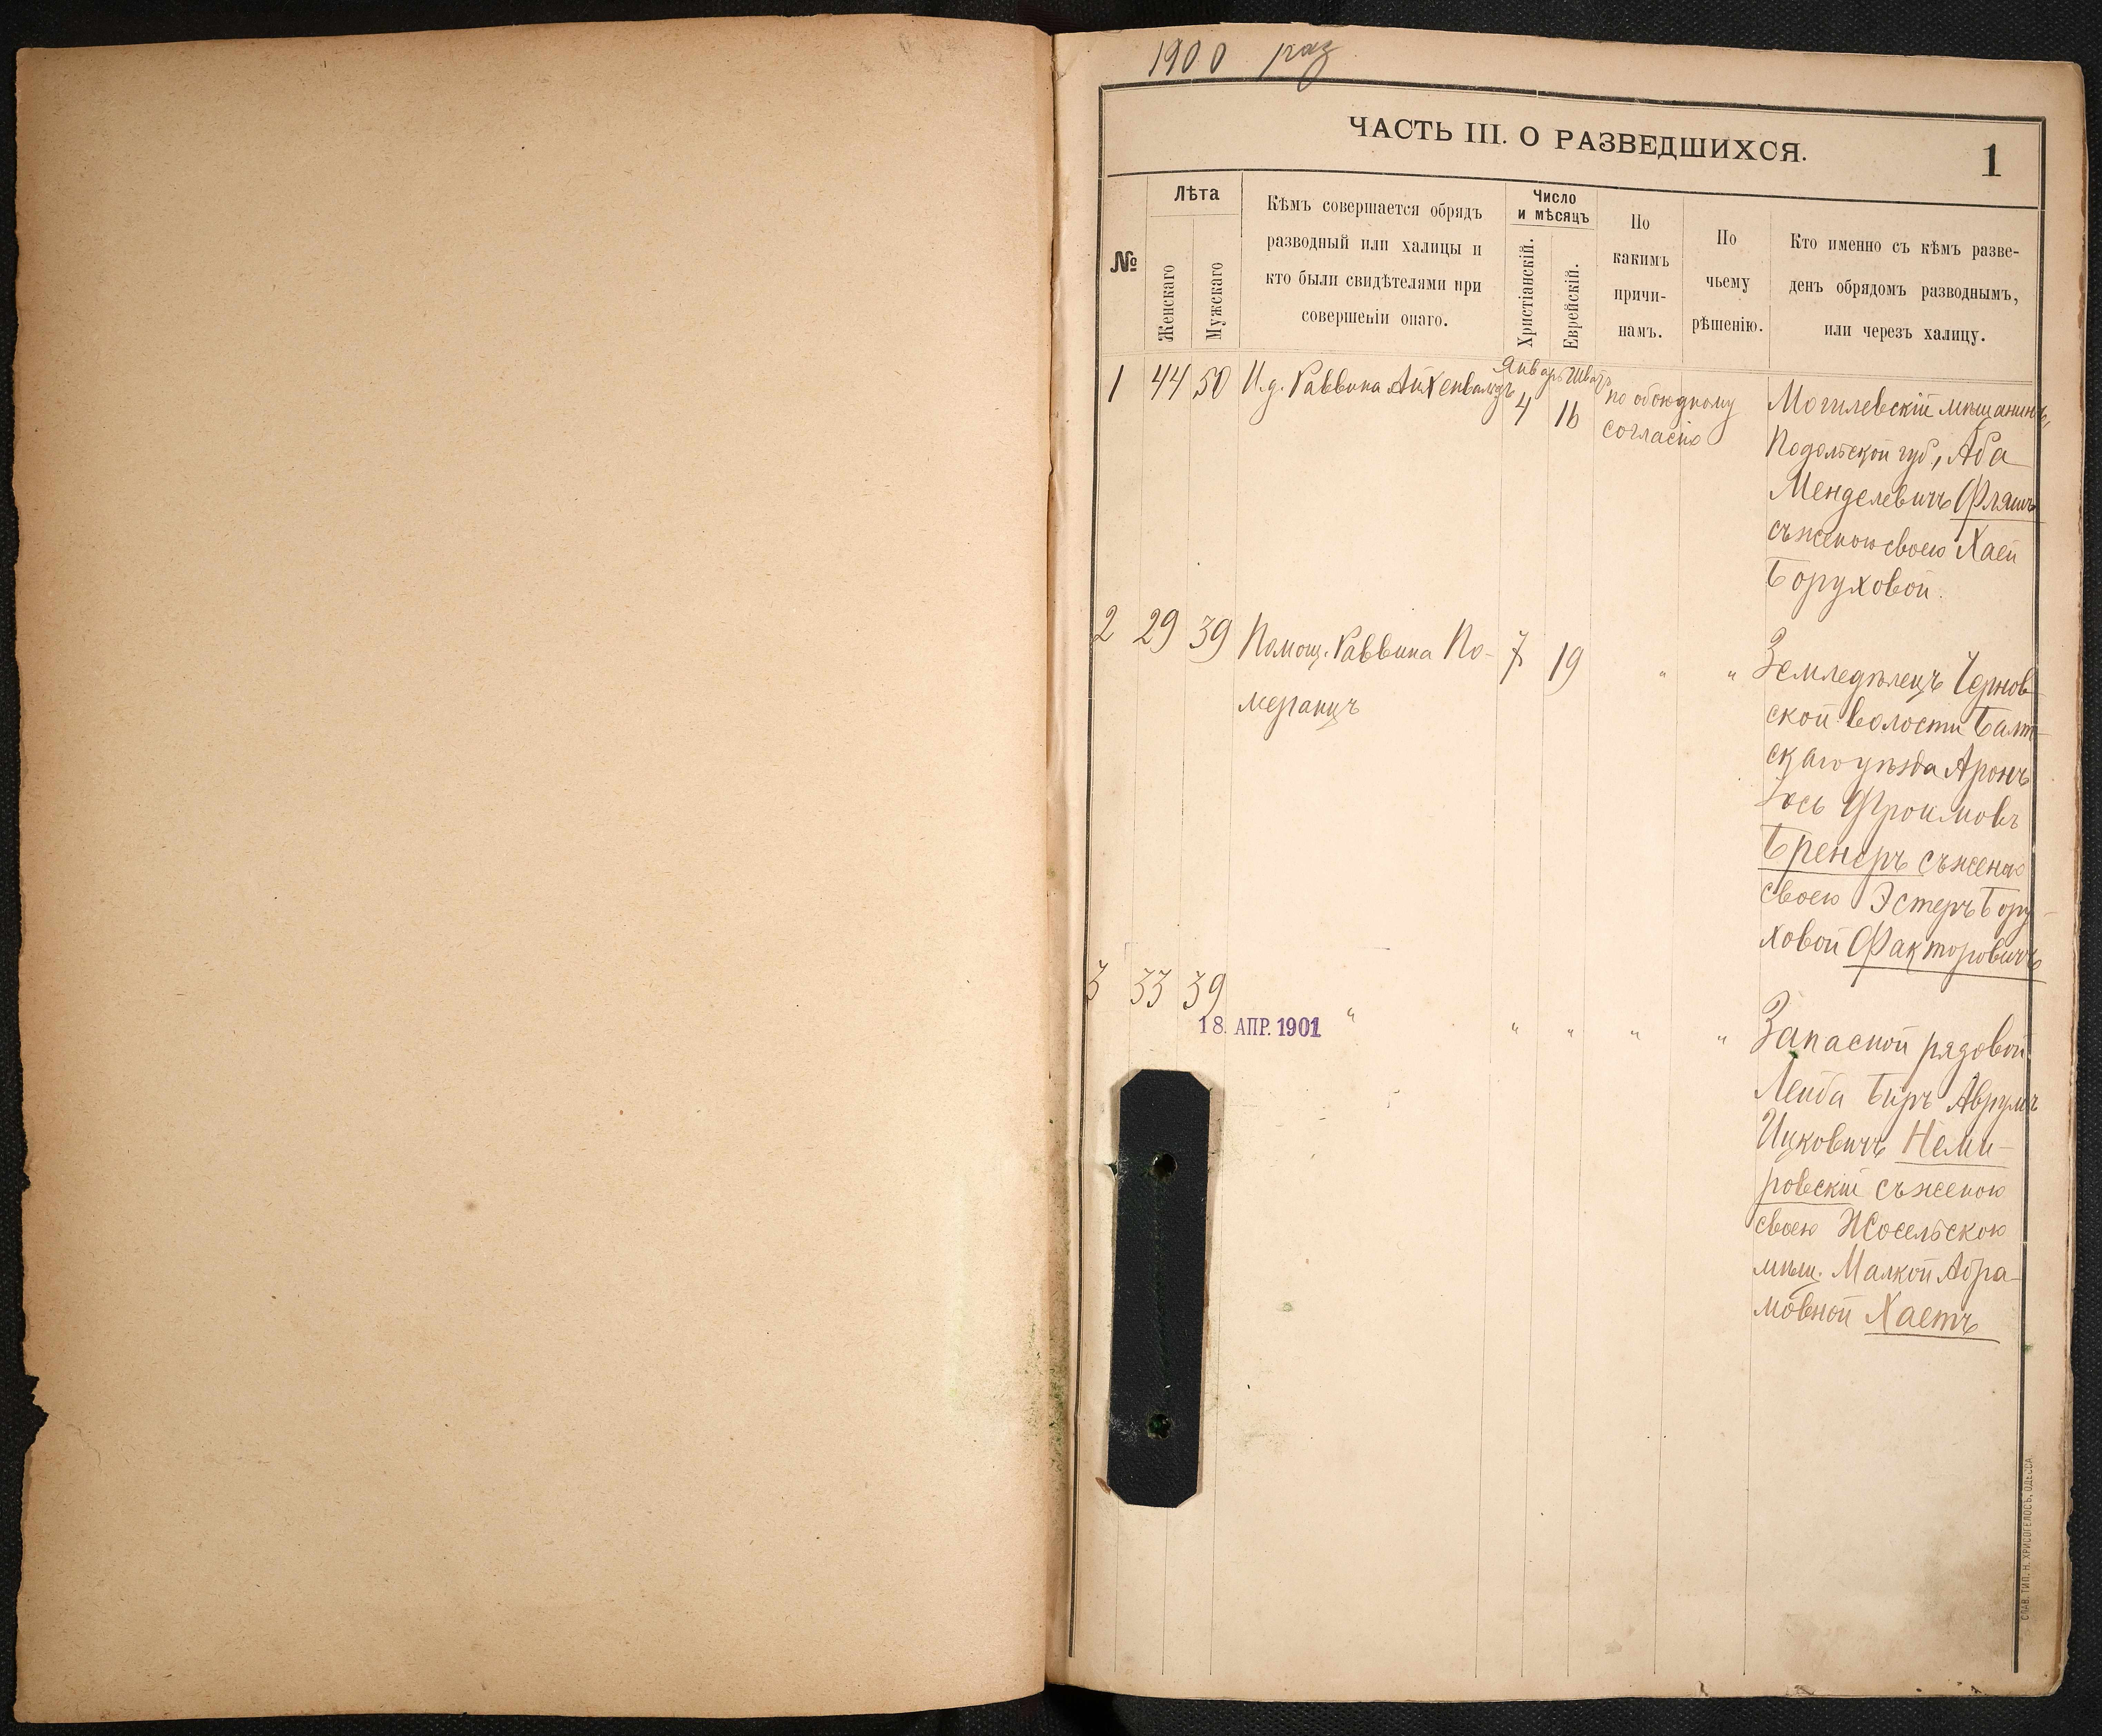 1900 раз
ЧАСТЬ III. О РАЗВЕДШИХСЯ.
1
№
Лѣта
Женскаго
Мужскаго
Кѣмъ совершается обрядъ
разводный или халицы и
кто были свидѣтелями при
совершеніи онаго.
Число
и мѣсяцъ
Христіанскій.
Еврейскій.
По
какимъ
причи-
намъ.
По
чьему
рѣшенію.
Кто именно съ кѣмъ разве-
денъ обрядомъ разводнымъ,
или черезъ халицу.
1 44 50 И.д. Раввина Айхенвальдъ
Январь Шватъ
4 16
по обоюдному
согласію
Могилевскій мѣщанинъ,
Подольской губ., Аба
Менделевичъ Фляшъ
съ женою своею Хаей
Боруховой.
2 29 39 Помощ. Раввина По-
меранцъ
7 19 " "
Земледѣлецъ Чернов-
ской волости Балт-
скаго уѣзда Аронъ
Іось Фроимовъ
Бренеръ съ женою
своею Эстеръ Бору-
ховой Факторовичъ
3 33 39 " " " " "
18. АПР. 1901
Запасной рядовой
Лейба Биръ Аврумъ
Ицковичъ Неми-
ровскій съ женою
своею
мѣщ. Малкой Абра-
мовной Хаетъ
СЛАВ. ТИП. Н. ХРИСОГЕЛОСЪ, ОДЕССА.